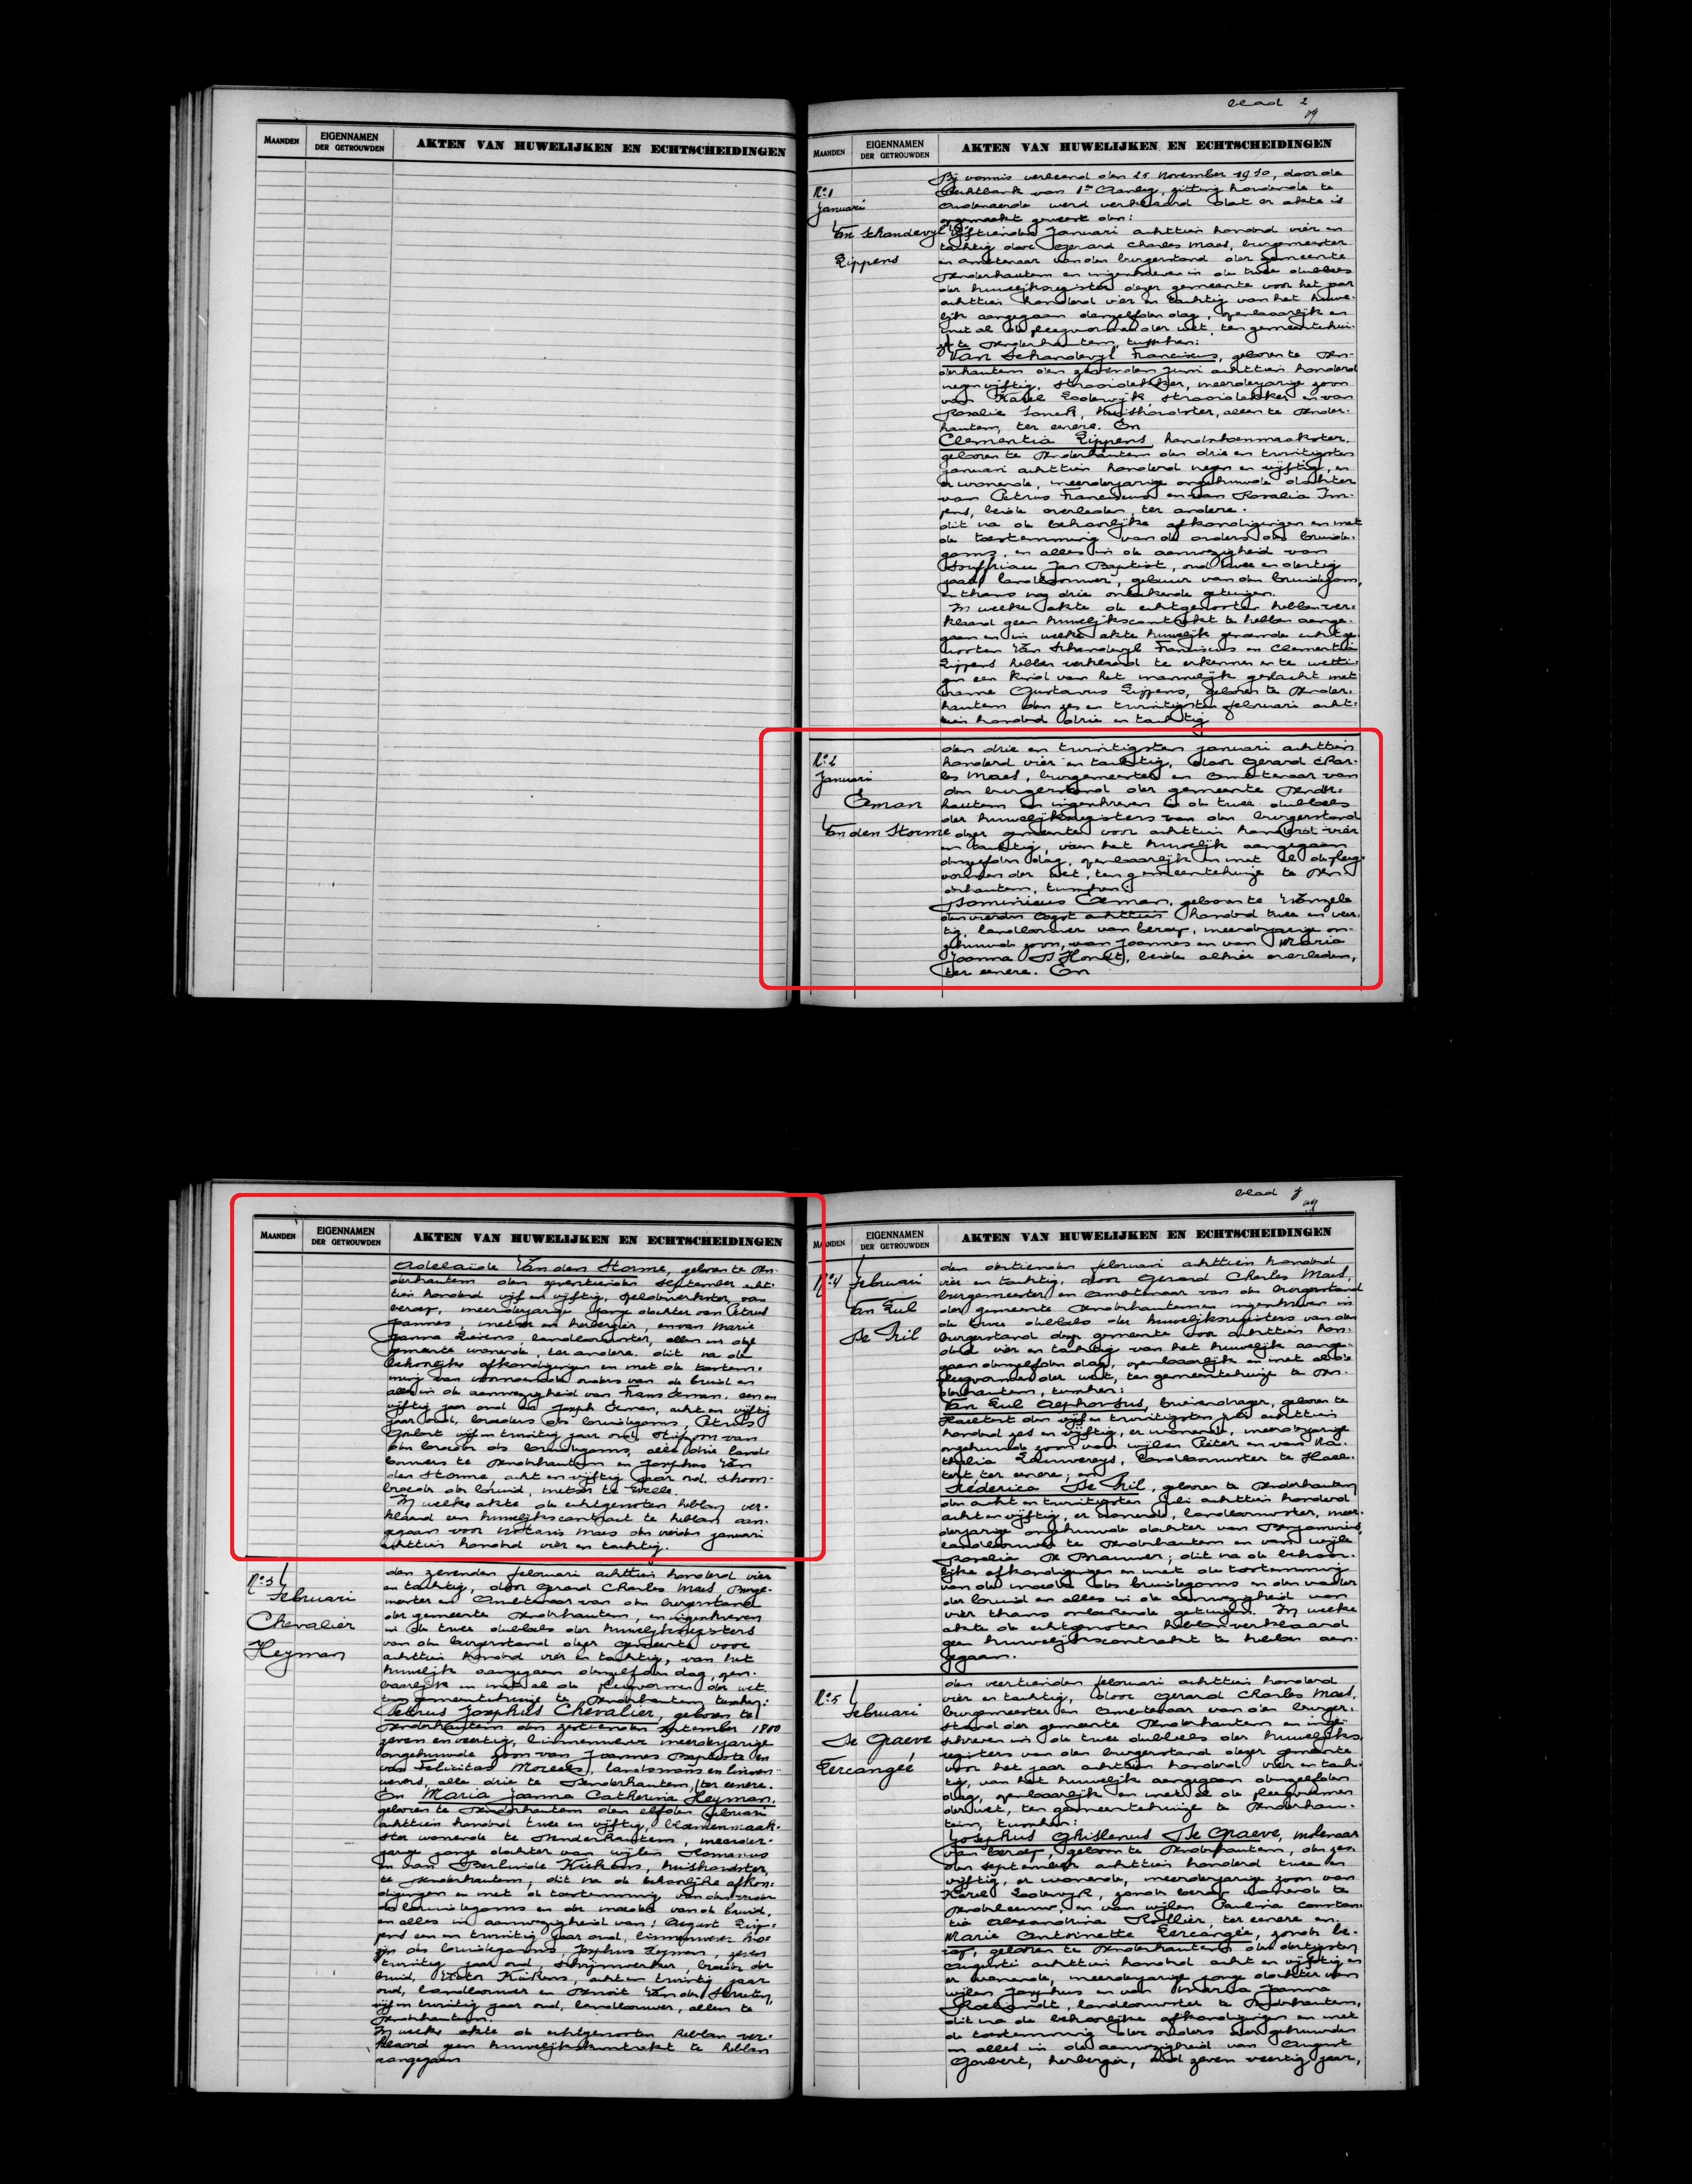 blad 2
MAANDEN
EIGENNAMEN
DER GETROUWDEN
AKTEN VAN HUWELIJKEN EN ECHTSCHEIDINGEN
MAANDEN
EIGENNAMEN
DER GETROUWDEN
AKTEN VAN HUWELIJKEN EN ECHTSCHEIDINGEN
No 1
Januari
Van Schandevyl
Eippens
Bij vonnis verleend den 25 November 1910, door de
Rechtbank van 1en Aanleg, zitting houdende te
Oudenaarde werd verklaard dat er akte is
opgemaakt geweest den:
vijftienden Januari achttien honderd vier en
tachtig door Gerard Charles Maes, burgemeester
en ambtenaar van den burgerstand der gemeente
Denderhautem en ingeschreven in de twee dubbels
der huwelijksregisters dezer gemeente voor het jaar
achttien honderd vier en tachtig van het huwe-
lijk aangegaan denzelfden dag, openbaarlijk en
met al de pleegvormen der wet, ten gemeentehui-
ze te Denderhautem, tusschen:
Van Schandevyl Franciscus, geboren te Den-
derhautem den Juni achttien honderd
negen vijftig, strooidekker, meerderjarige zoon
van Karel Lodewijk, strooidekker en van
Rosalie Sonck, huishoudster, allen te Dender-
hautem, ter eenere. En
Clementia Eippens, handschoenmaakster,
geboren te Denderhautem den drie en twintigsten
januari achttien honderd negen en vijftig, en
er wonende, meerderjarige ongehuwde dochter
van Petrus Franciscus en van Rosalia Im-
pens, beide overleden, ter andere.
dit na de behoorlijke afkondigingen en met
de toestemming van de ouders des bruide-
goms, en alles in de aanwezigheid van
Souffriau Jan Baptist, oud twee en dertig
jaar, landbouwer, gebuur van den bruidegom,
en thans nog drie onbekende getuigen.
In welke akte de echtgenooten hebben ver-
klaard geen huwelijkscontrakt te hebben aange-
gaan en in welke akte huwelijk genoemde echtge-
nooten Van Schandevyl Franciscus en Clementia
Eippens hebben verklaard te erkennen en te wetti-
gen een kind van het mannelijk geslacht met
name Gustavus Eippens, geboren te Dender-
hautem den zes en twintigsten februari acht-
tien honderd drie en tachtig
No 2
Januari
Eeman
Van den Storme
den drie en twintigsten januari achttien
honderd vier en tachtig, door Gerard Char-
les Maes, burgemeester en Ambtenaar van
den burgerstand der gemeente Dender-
hautem en ingeschreven in de twee dubbels
der huwelijksregisters van den burgerstand
dezer gemeente voor achttien honderd vier
en tachtig, van het huwelijk aangegaan
denzelfden dag, openbaarlijk en met al de pleeg-
vormen der wet, ten gemeentehuize te Den-
derhautem, tusschen:
Dominicus Eeman, geboren te Vonzele
den vierden Oogst achttien honderd twee en veer-
tig, landbouwer van beroep, meerderjarige on-
gehuwde zoon, van Joannes en van Maria
Joanna D'Hondt, beide alhier overleden,
ter eenere. En
blad 3
MAANDEN
EIGENNAMEN
DER GETROUWDEN
AKTEN VAN HUWELIJKEN EN ECHTSCHEIDINGEN
Adelaïde Van den Storme, geboren te Den-
derhautem den zeventienden September acht-
tien honderd vijf en vijftig, van
beroep, meerderjarige jonge dochter van Petrus
Joannes, metser en herbergier, en van Marie
Joanna Lievens, landbouwster, allen in deze
gemeente wonende, ter andere. dit na de
behoorlijke afkondigingen en met de toestem-
ming van voornoemde ouders van de bruid en
alles in de aanwezigheid van Frans Eeman, een en
vijftig jaar oud en Joseph Eeman, acht en vijftig
jaar oud, broeders des bruidegoms, Petrus
Goubert vijf en twintig jaar oud, stiefzoon van
den broeder des bruidegoms, alle drie land-
bouwers te Denderhautem en Josephus Van
den Storme, acht en vijftig jaar oud, schoon-
broeder der bruid, metser te Welle.
In welke akte de echtgenooten hebben ver-
klaard een huwelijkscontract te hebben aan-
gegaan voor Notaris Maes den vierden januari
achttien honderd vier en tachtig.
No 3
Februari
Chevalier
Heyman
den zevenden februari achttien honderd vier
en tachtig, door Gerard Charles Maes, Burge-
meester en Ambtenaar van den burgerstand
der gemeente Denderhautem, en ingeschreven
in de twee dubbels der huwelijksregisters
van den burgerstand dezer gemeente voor
achttien honderd vier en tachtig, van het
huwelijk aangegaan denzelfden dag, open-
baarlijk en met al de pleegvormen der wet
ten gemeentehuize te Denderhautem tusschen:
Petrus Josephus Chevalier, geboren te
Denderhautem den zestienden september 1800
zeven en veertig, linnenwever meerderjarige
ongehuwde zoon van Joannes Baptiste en
van Felicitas Moreels, landsmans en linnen-
wevers, alle drie te Denderhautem, ter eenere.
En Maria Joanna Catherina Heyman,
geboren te Denderhautem den elfden februari
achttien honderd twee en vijftig, bloemenmaak-
ster wonende te Denderhautem, meerder-
jarige jonge dochter van wijlen Romanus
en van Berlinde Kiekens, huishoudster,
te Denderhautem, dit na de behoorlijke afkon-
digingen en met de toestemming van den vader
des bruidegoms en der moeder van de bruid,
en alles in aanwezigheid van: August Eip-
pens een en twintig jaar oud, linnenwever
des bruidegoms, Josephus Heyman, zeven
twintig jaar oud, schrijnwerker, broeder der
bruid, Victor Kiekens, acht en twintig jaar
oud, landbouwer en Benoit Van der
vijf en twintig jaar oud, landbouwer, allen te
Denderhautem.
In welke akte de echtgenooten hebben ver-
klaard geen huwelijkskontrakt te hebben
aangegaan
MAANDEN
EIGENNAMEN
DER GETROUWDEN
AKTEN VAN HUWELIJKEN EN ECHTSCHEIDINGEN
No 4 Februari
Van Eul
De Pril
den dertienden februari achttien honderd
vier en tachtig, door Gerard Charles Maes,
burgemeester en Ambtenaar van den burgerstand
der gemeente Denderhautem en ingeschreven in
de twee dubbels der huwelijksregisters van den
burgerstand dezer gemeente voor achttien hon-
derd vier en tachtig van het huwelijk aange-
gaan denzelfden dag, openbaarlijk en met al de
pleegvormen der wet, ten gemeentehuize te Den-
derhautem, tusschen:
Van Eul Alphonsus, brievendrager, geboren te
Haeltert den vijf en twintigsten juli achttien
honderd zes en vijftig, er wonende, meerderjarige
ongehuwde zoon van wijlen Pieter en van Na-
thalia Schuvereys, landbouwster te Hael-
tert ter eenere; en
Fréderica De Pril, geboren te Denderhautem
den acht en twintigsten Juli achttien honderd
acht en vijftig, er wonende, landbouwster, meer-
derjarige ongehuwde dochter van Benjaminus,
landbouwer te Denderhautem en van wijle
Rosalia De Brauwer; dit na de behoor-
lijke afkondigingen en met de toestemming
van de moeder des bruidegoms en den vader
der bruid en alles in de aanwezigheid van
vier thans onbekende getuigen. In welke
akte de echtgenooten hebben verklaard
geen huwelijkscontrakt te hebben aan-
gegaan.
No 5
Februari
De Graeve
Eercangée
den veertienden februari achttien honderd
vier en tachtig, door Gerard Charles Maes,
burgemeester en Ambtenaar van den burger-
stand der gemeente Denderhautem en inge-
schreven in de twee dubbels der huwelijks-
registers van den burgerstand dezer gemeente
voor het jaar achttien honderd vier en tach-
tig, van het huwelijk aangegaan denzelfden
dag, openbaarlijk en met al de pleegvormen
der wet, ten gemeentehuize te Denderhau-
tem, tusschen:
Josephus Ghislenus De Graeve, molenaar
van beroep, geboren te Denderhautem, den zes-
den september achttien honderd twee en
vijftig, er wonende, meerderjarige zoon van
Karel Lodewyk, zonder beroep wonende te
Denderleeuw, en van wijlen Paulina Constan-
tia Alexandrina Rollier, ter eenere en
Marie Antoinette Eercangée, zonder be-
roep, geboren te Denderhautem den dertigsten
Augusti achttien honderd acht en vijftig en
er wonende, meerderjarige jonge dochter van
wijlen Josephus en van Maria Joanna
Roelandt, landbouwster te Denderhautem,
dit na de behoorlijke afkondigingen en met
de toestemming der ouders der gehuwden
en alles in de aanwezigheid van August
Goubert, herbergier, oud zeven veertig jaar,